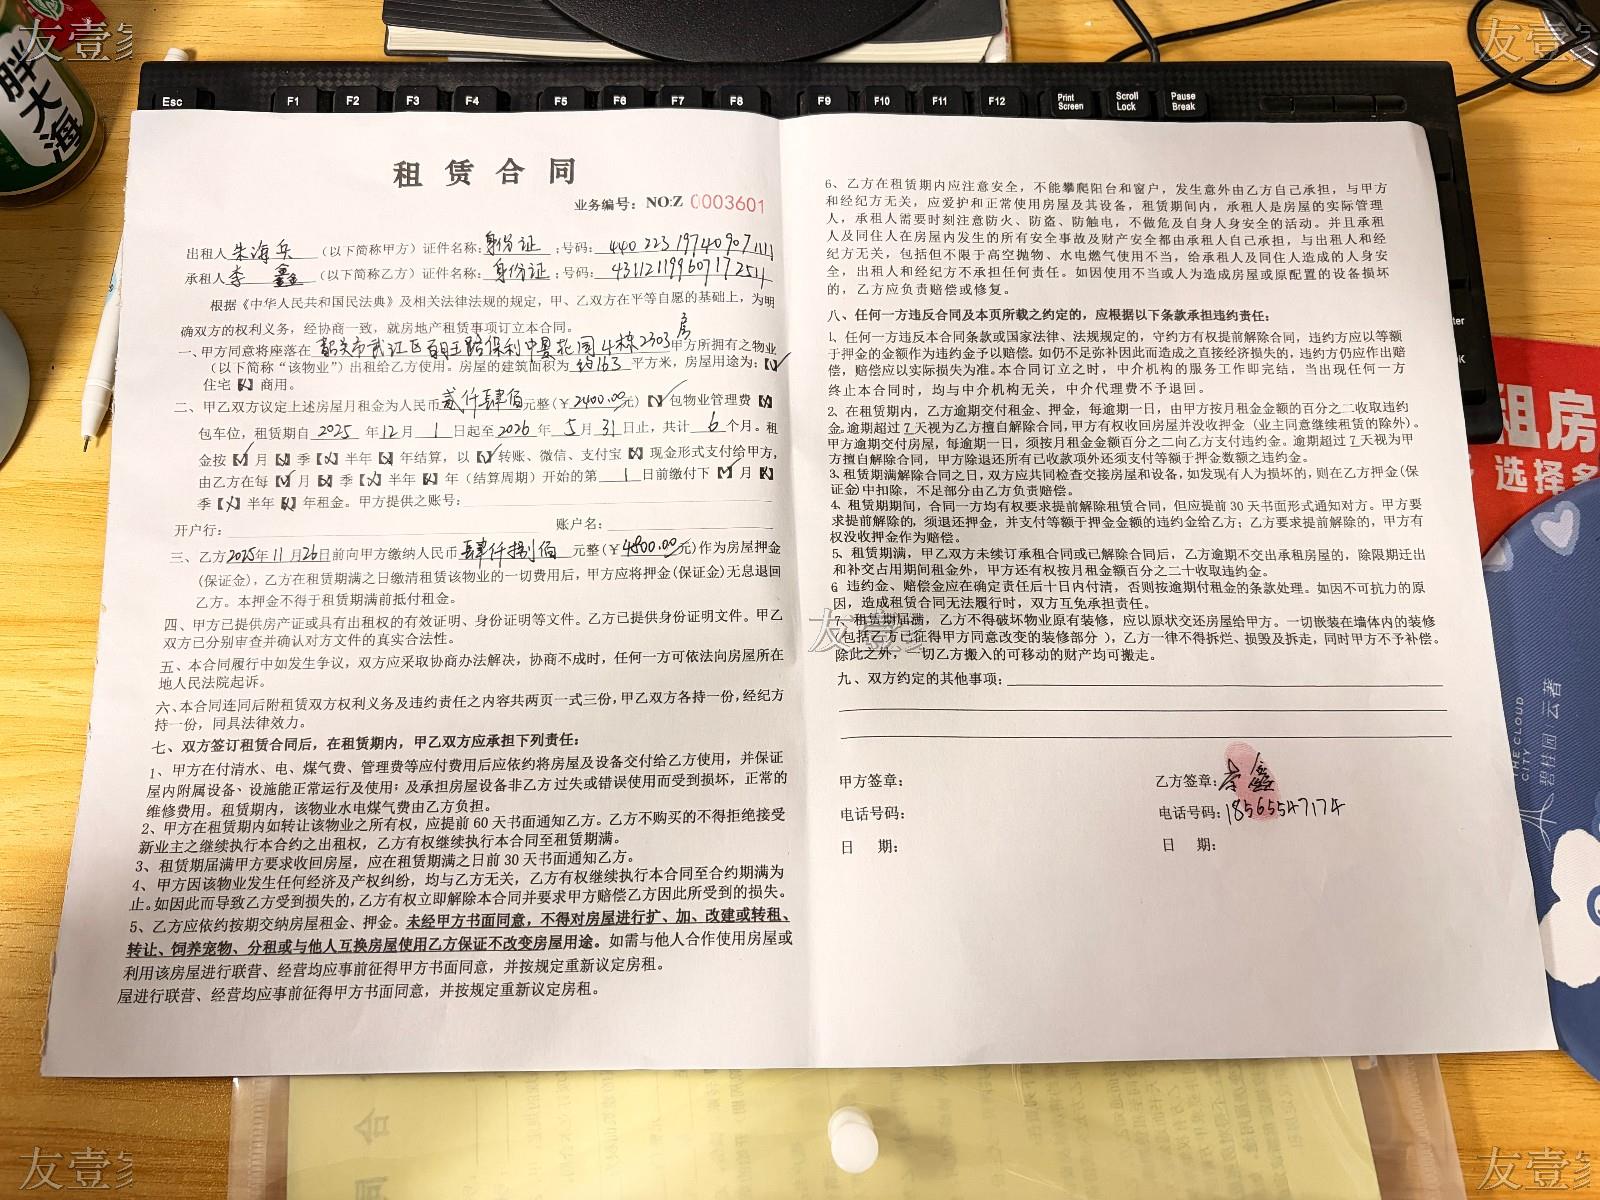 友壹家
友壹家
胖大海
Esc F1 F2 F3 F4 F5 F6 F7 F8 F9 F10 F11 F12 Print Screen Scroll Lock Pause Break
租赁合同
业务编号：NO:Z 0003601
出租人 朱海兵 （以下简称甲方）证件名称：身份证；号码：440223197409071111
承租人 李鑫 （以下简称乙方）证件名称：身份证；号码：431121199607172514
根据《中华人民共和国民法典》及相关法律法规的规定，甲、乙双方在平等自愿的基础上，为明
确双方的权利义务，经协商一致，就房地产租赁事项订立本合同。
一、甲方同意将座落在 韶关市武江区百旺路保利中景花园4栋2303房 甲方所拥有之物业
（以下简称“该物业”）出租给乙方使用。房屋的建筑面积为 约163 平方米，房屋用途为：【✓】
住宅【×】商用。
二、甲乙双方议定上述房屋月租金为人民币 贰仟肆佰 元整（￥2400.00元）【✓】包物业管理费【×】
包车位，租赁期自 2025 年 12 月 1 日起至 2026 年 5 月 31 日止，共计 6 个月。租
金按【✓】月【×】季【×】半年【×】年结算，以【✓】转账、微信、支付宝【×】现金形式支付给甲方，
由乙方在每【✓】月【×】季【×】半年【×】年（结算周期）开始的第 1 日前缴付下【✓】月【×】
季【×】半年【×】年租金。甲方提供之账号：
开户行： 账户名：
三、乙方2025年11月26日前向甲方缴纳人民币 肆仟捌佰 元整（￥4800.00元）作为房屋押金
(保证金)，乙方在租赁期满之日缴清租赁该物业的一切费用后，甲方应将押金(保证金)无息退回
乙方。本押金不得于租赁期满前抵付租金。
四、甲方已提供房产证或具有出租权的有效证明、身份证明等文件。乙方已提供身份证明文件。甲乙
双方已分别审查并确认对方文件的真实合法性。
五、本合同履行中如发生争议，双方应采取协商办法解决，协商不成时，任何一方可依法向房屋所在
地人民法院起诉。
六、本合同连同后附租赁双方权利义务及违约责任之内容共两页一式三份，甲乙双方各持一份，经纪方
持一份，同具法律效力。
七、双方签订租赁合同后，在租赁期内，甲乙双方应承担下列责任：
1、甲方在付清水、电、煤气费、管理费等应付费用后应依约将房屋及设备交付给乙方使用，并保证
屋内附属设备、设施能正常运行及使用；及承担房屋设备非乙方过失或错误使用而受到损坏，正常的
维修费用。租赁期内，该物业水电煤气费由乙方负担。
2、甲方在租赁期内如转让该物业之所有权，应提前60天书面通知乙方。乙方不购买的不得拒绝接受
新业主之继续执行本合约之出租权，乙方有权继续执行本合同至租赁期满。
3、租赁期届满甲方要求收回房屋，应在租赁期满之日前30天书面通知乙方。
4、甲方因该物业发生任何经济及产权纠纷，均与乙方无关，乙方有权继续执行本合同至合约期满为
止。如因此而导致乙方受到损失的，乙方有权立即解除本合同并要求甲方赔偿乙方因此所受到的损失。
5、乙方应依约按期交纳房屋租金、押金。未经甲方书面同意，不得对房屋进行扩、加、改建或转租、
转让、饲养宠物、分租或与他人互换房屋使用乙方保证不改变房屋用途。如需与他人合作使用房屋或
利用该房屋进行联营、经营均应事前征得甲方书面同意，并按规定重新议定房租。
屋进行联营、经营均应事前征得甲方书面同意，并按规定重新议定房租。
6、乙方在租赁期内应注意安全，不能攀爬阳台和窗户，发生意外由乙方自己承担，与甲方
和经纪方无关，应爱护和正常使用房屋及其设备，租赁期间内，承租人是房屋的实际管理
人，承租人需要时刻注意防火、防盗、防触电，不做危及自身人身安全的活动。并且承租
人及同住人在房屋内发生的所有安全事故及财产安全都由承租人自己承担，与出租人和经
纪方无关，包括但不限于高空抛物、水电燃气使用不当，给承租人及同住人造成的人身安
全，出租人和经纪方不承担任何责任。如因使用不当或人为造成房屋或原配置的设备损坏
的，乙方应负责赔偿或修复。
八、任何一方违反合同及本页所载之约定的，应根据以下条款承担违约责任：
1、任何一方违反本合同条款或国家法律、法规规定的，守约方有权提前解除合同，违约方应以等额
于押金的金额作为违约金予以赔偿。如仍不足弥补因此而造成之直接经济损失的，违约方仍应作出赔
偿，赔偿应以实际损失为准。本合同订立之时，中介机构的服务工作即完结，当出现任何一方
终止本合同时，均与中介机构无关，中介代理费不予退回。
2、在租赁期内，乙方逾期交付租金、押金，每逾期一日，由甲方按月租金金额的百分之二收取违约
金。逾期超过7天视为乙方擅自解除合同，甲方有权收回房屋并没收押金（业主同意继续租赁的除外）。
甲方逾期交付房屋，每逾期一日，须按月租金金额百分之二向乙方支付违约金。逾期超过7天视为甲
方擅自解除合同，甲方除退还所有已收款项外还须支付等额于押金数额之违约金。
3、租赁期满解除合同之日，双方应共同检查交接房屋和设备，如发现有人为损坏的，则在乙方押金(保
证金)中扣除，不足部分由乙方负责赔偿。
4、租赁期期间，合同一方均有权要求提前解除租赁合同，但应提前30天书面形式通知对方。甲方要
求提前解除的，须退还押金，并支付等额于押金金额的违约金给乙方；乙方要求提前解除的，甲方有
权没收押金作为赔偿。
5、租赁期满，甲乙双方未续订承租合同或已解除合同后，乙方逾期不交出承租房屋的，除限期迁出
和补交占用期间租金外，甲方还有权按月租金额百分之二十收取违约金。
6 违约金、赔偿金应在确定责任后十日内付清，否则按逾期付租金的条款处理。如因不可抗力的原
因，造成租赁合同无法履行时，双方互免承担责任。
7、租赁期届满，乙方不得破坏物业原有装修，应以原状交还房屋给甲方。一切嵌装在墙体内的装修
（包括乙方已征得甲方同意改变的装修部分），乙方一律不得拆烂、损毁及拆走，同时甲方不予补偿。
除此之外，一切乙方搬入的可移动的财产均可搬走。
九、双方约定的其他事项：
甲方签章： 乙方签章：李鑫
电话号码： 电话号码：18565547174
日 期： 日 期：
友壹家
租房
选择多
THE CLOUD CITY
碧桂园 云著
友壹家
友壹家